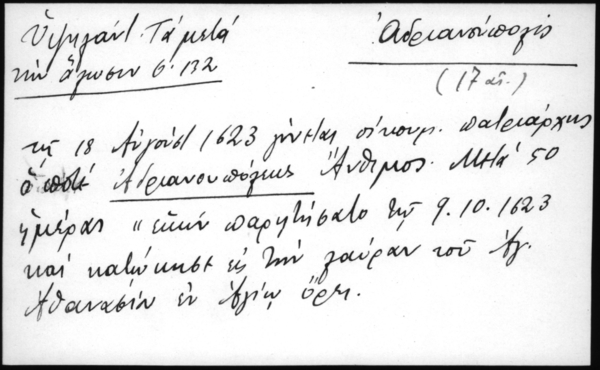 Ὑψηλάντ. Τὰ μετὰ
τὴν ἅλωσιν σ. 132
Ἀδριανούπολις
(17 αἰ.)
τῇ 18 Αὐγούστ 1623 γίνεται οἰκουμ. πατριάρχης
ὁ ποτέ Ἀδριανουπόλεως Ἄνθιμος. Μετὰ 50
ἡμέρας "ἑκὼν παρῃτήσατο τῇ 9.10.1623
καὶ κατῴκησε εἰς τὴν λαύραν τοῦ Ἁγ.
Ἀθανασίου ἐν Ἁγίῳ Ὄρει.